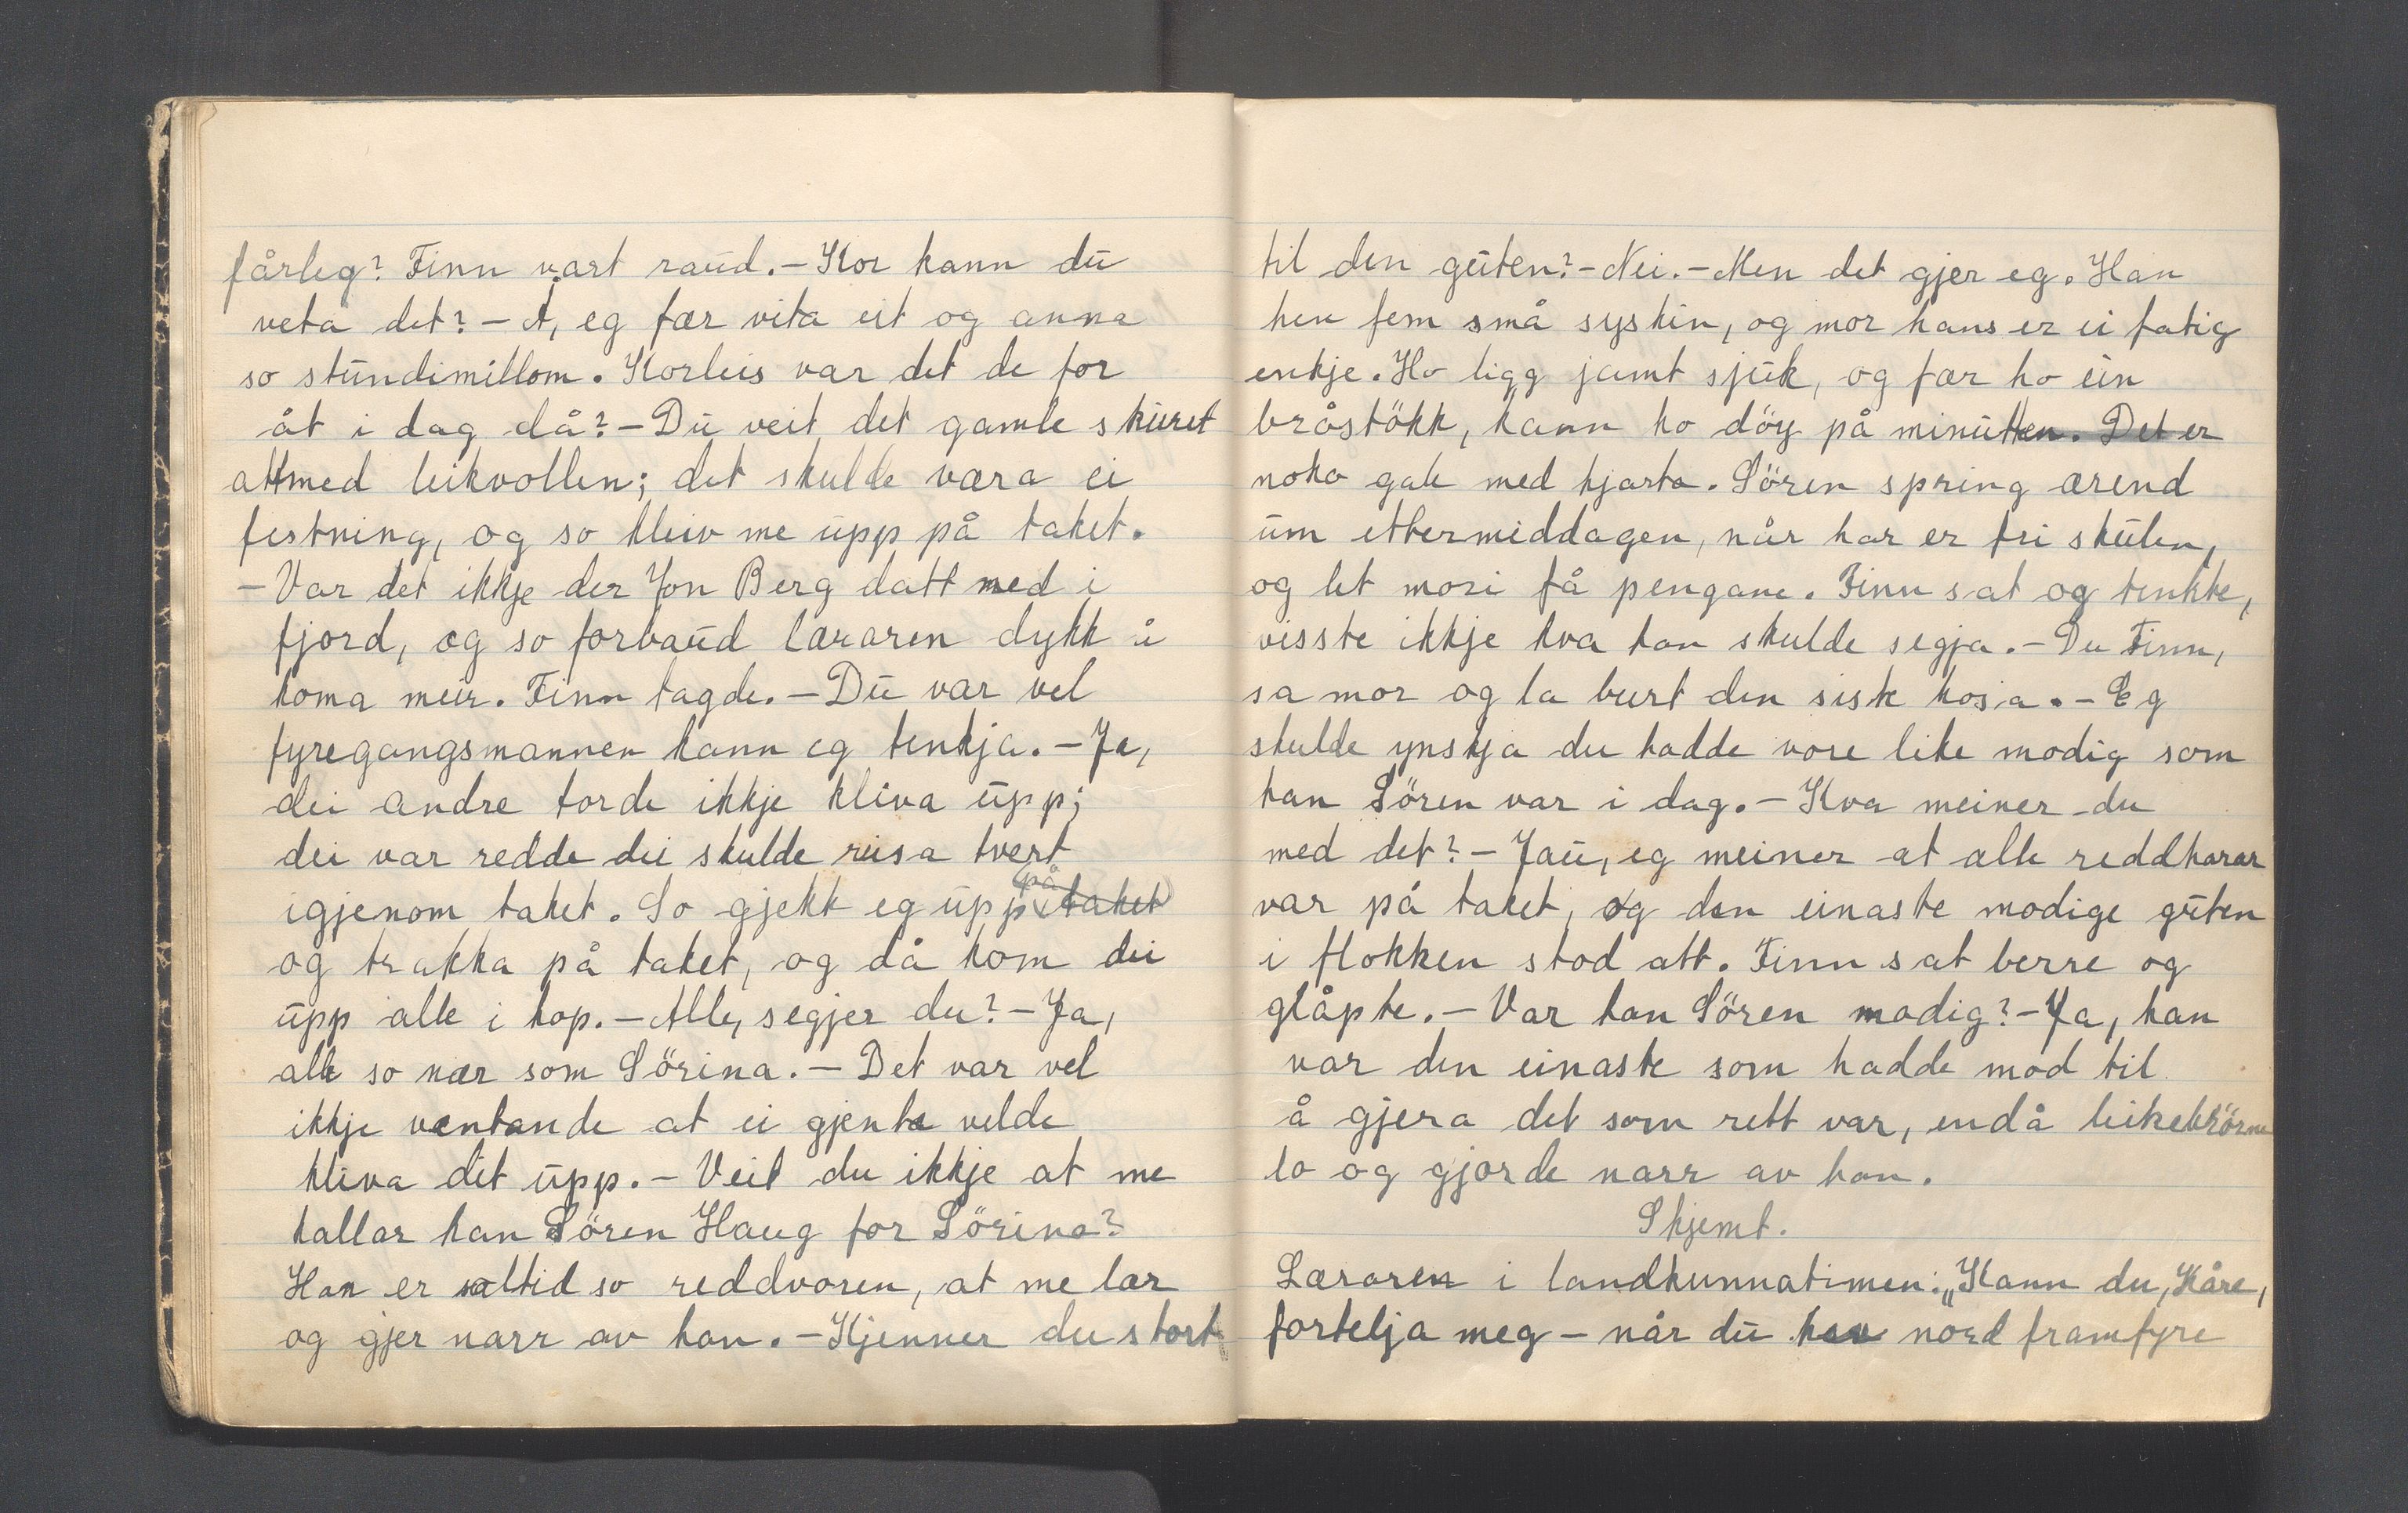 fårleg? Finn vart raud. – Kor kann du
veta det? – Å, eg fær vita eit og anna
so stundimillom. Korleis var det de for
åt i dag då? – Du veit det gamle skuret
attmed leikvollen; det skulde væra ei
festning, og so kleiv me upp på taket.
– Var det ikkje der Jon Berg datt ned i
fjord, og so forbaud læraren dykk å
koma meir. Finn tagde. – Du var vel
fyregangsmannen kann eg tenkja. – Ja,
dei andre torde ikkje kliva upp;
dei var redde dei skulde reisa tvert
igjenom taket. So gjekk eg upp (på taket)
og trakka på taket, og då kom dei
upp alle i hop. – Alle, segjer du? – Ja,
alle so nær som Sörina. – Det var vel
ikkje ventande at ei gjenta velde
kliva dit upp. – Veit du ikkje at me
kallar han Sören Haug for Sörina?
Han er alltid so reddvoren, at me lær
og gjer narr av han. – Kjenner du stort
til den guten? – Nei. – Men det gjer eg. Han
hev fem små syskin, og mor hans er ei fatig
enkje. Ho ligg jamt sjuk, og fær ho ein
bråstökk, kann ho döy på minutten. Det er
noko gale med hjarta. Sören spring ærend
um ettermiddagen, når han er fri skulen,
og let mori få pengane. Finn sat og tenkte,
visste ikkje kva han skulde segja. – Du Finn,
sa mor og la burt den siste hosa. – Eg
skulde ynskja du hadde vore like modig som
han Sören var i dag. – Kva meiner du
med det? – Jau, eg meiner at alle reddharar
var på taket, og den einaste modige guten
i flokken stod att. Finn sat berre og
glåpte. – Var han Sören modig? – Ja, han
var den einaste som hadde mod til
å gjera det som rett var, endå leikebrörne
lo og gjorde narr av han.
Skjemt.
Læraren i landkunnatimen: „Kann du, Kåre,
fortelja meg – når du hev nord framfyre